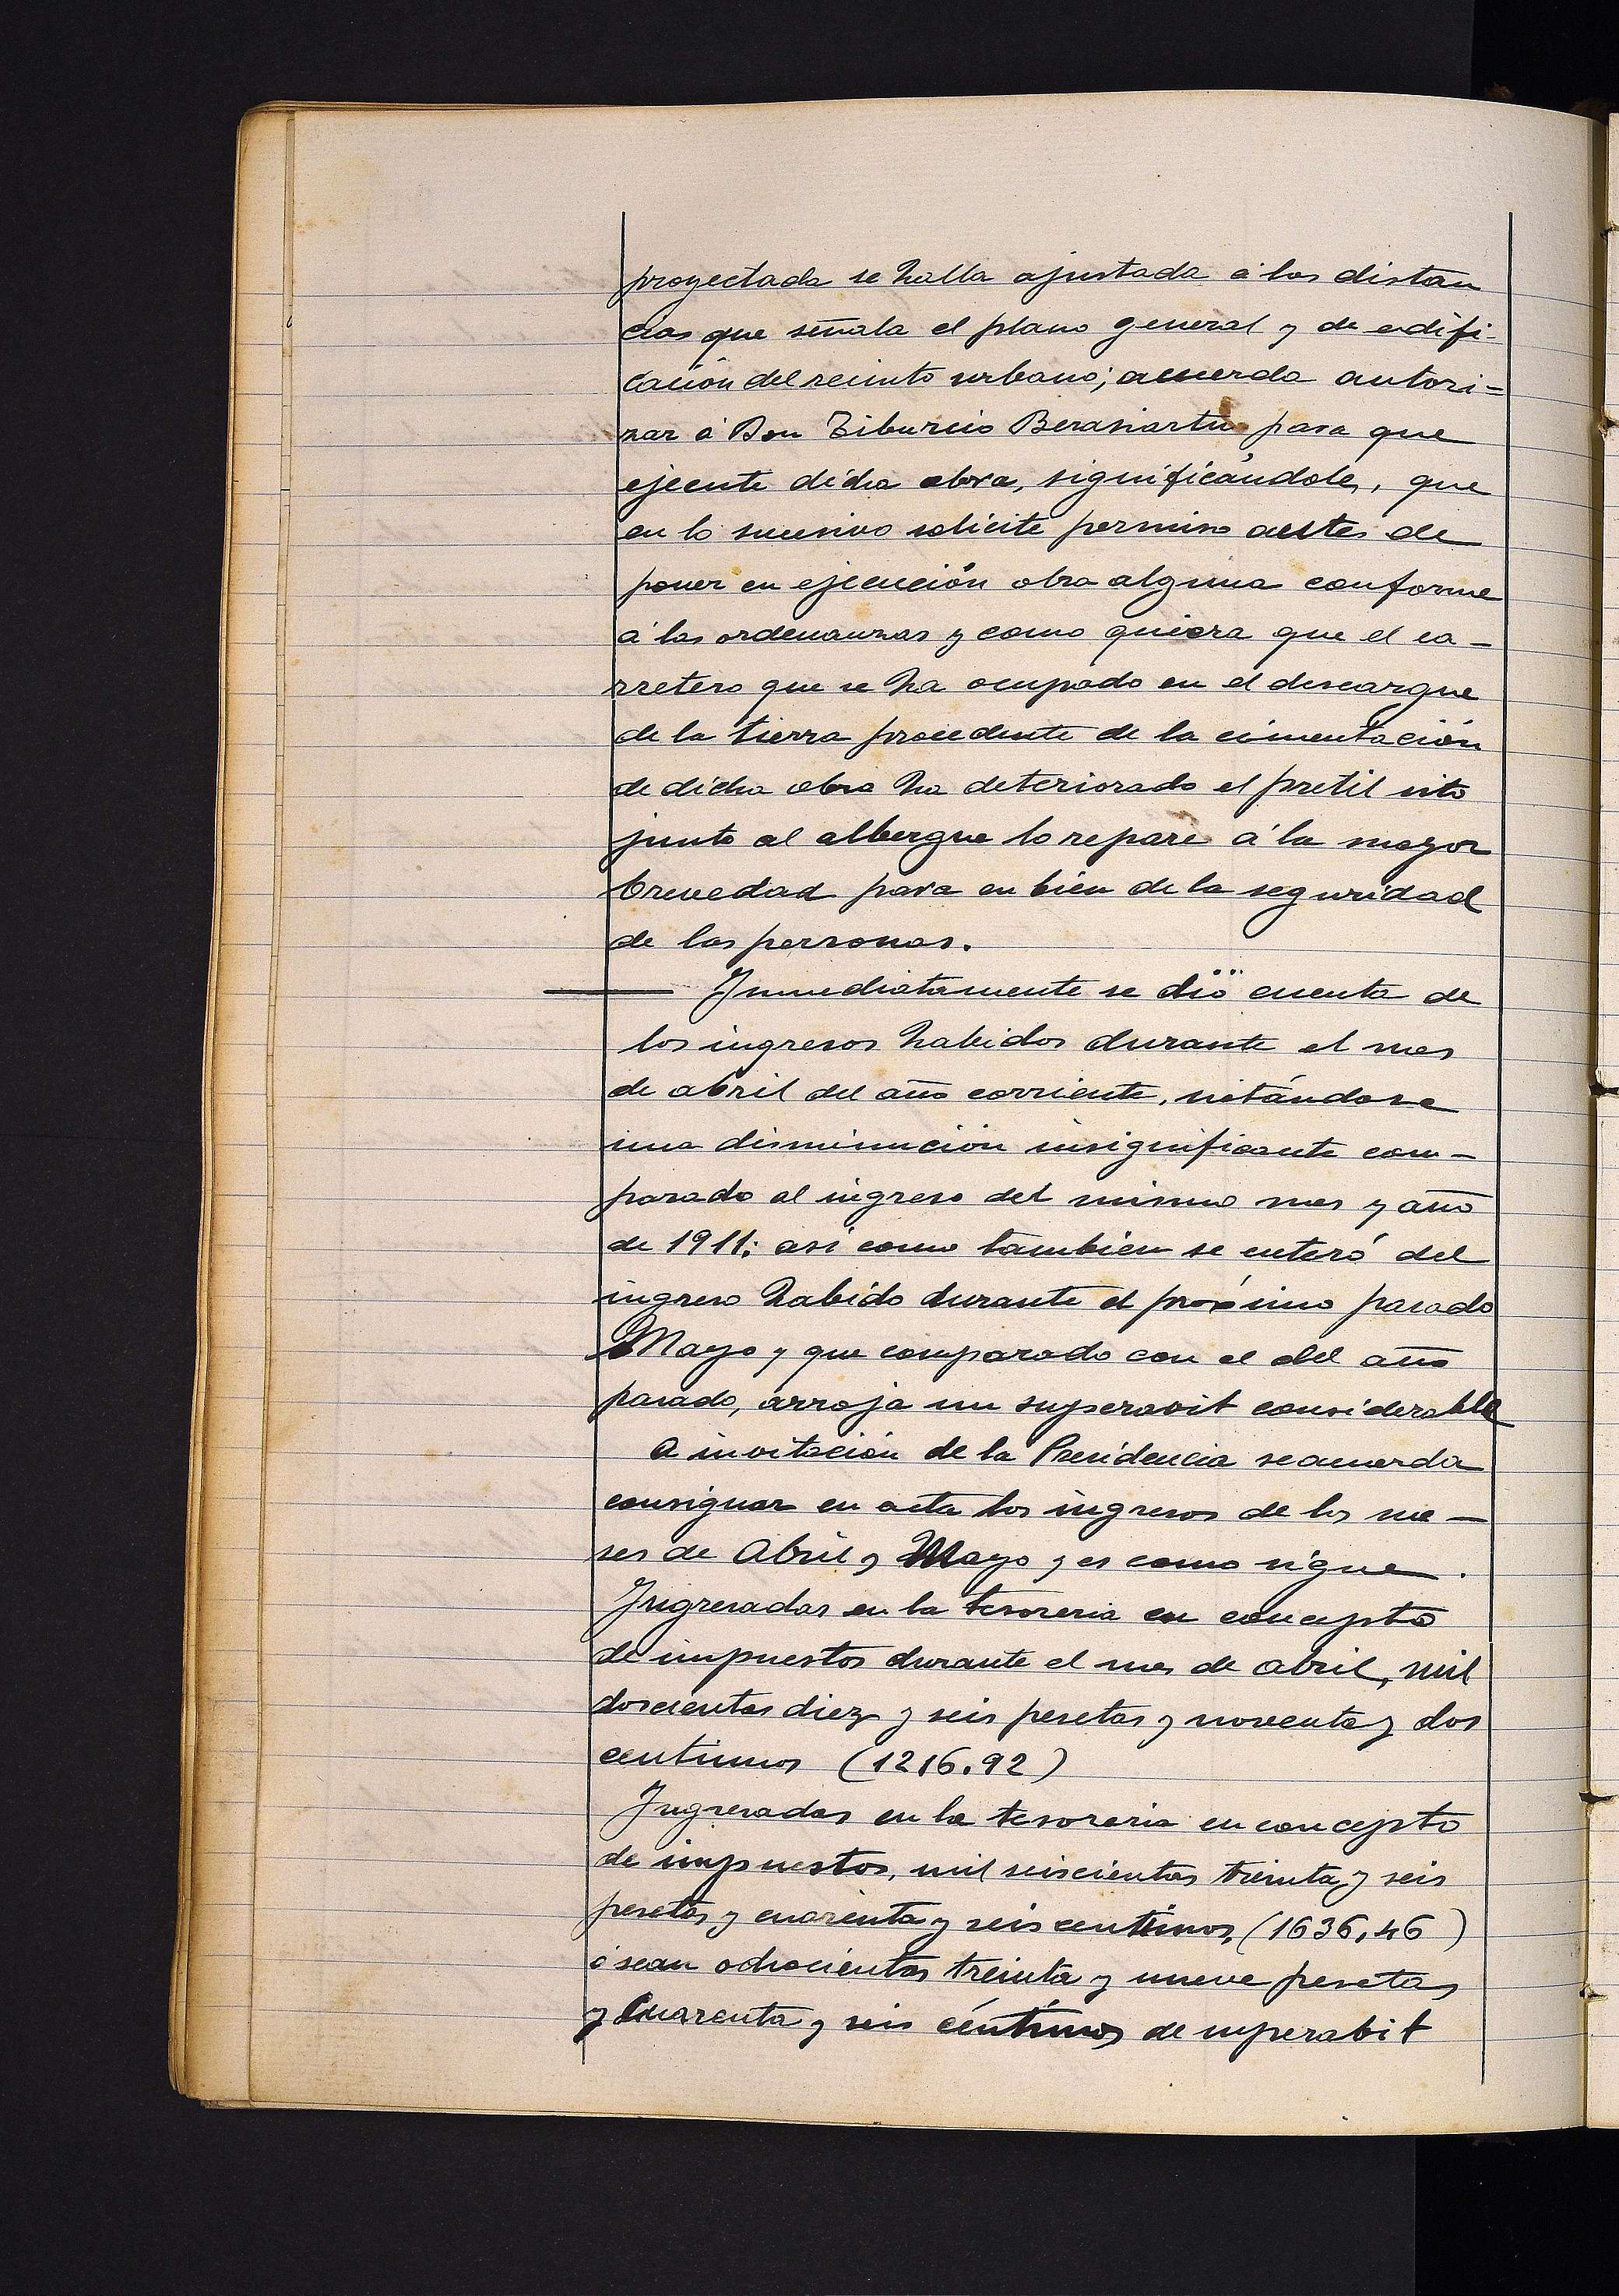 proyectada se halla ajustada á las distan
cias que señala el plano general y de edifi-
cación del recinto urbano; acuerda autori-
zar á Don Tiburcio Berasiartu para que
ejecute dicha obra, significándole, que
en lo sucesivo solicite permiso antes de
poner en ejecución obra alguna conforme
á las ordenanzas y como quiera que el ca-
rretero que se ha ocupado en el descargue
de la tierra procedente de la cimentación
de dicha obra ha deteriorado el pretil sito
junto al albergue lo repare á la mayor
brevedad para en bien de la seguridad
de las personas.
Inmediatamente se dió cuenta de
los ingresos habidos durante el mes
de abril del año corriente, notándose
una disminución insignificante com-
parado al ingreso del mismo mes y año
de 1911; así como tambien se enteró del
ingreso habido durante el próximo pasado
Mayo y que comparado con el del año
pasado, arroja un superavit considerable
A invitación de la Presidencia se acuerda
consignar en acta los ingresos de los me-
ses de Abril y Mayo y es como sigue.
Ingresadas en la tesoreria en concepto
de impuestos durante el mes de abril, mil
doscientas diez y seis pesetas y noventa y dos
centimos (1216.92)
Ingresadas en la tesoreria en concepto
de impuestos, mil seiscientas treinta y seis
pesetas y cuarenta y seis centimos, (1636,46)
ó sean ochocientas treinta y nueve pesetas
y Cuarenta y seis céntimos de superabit